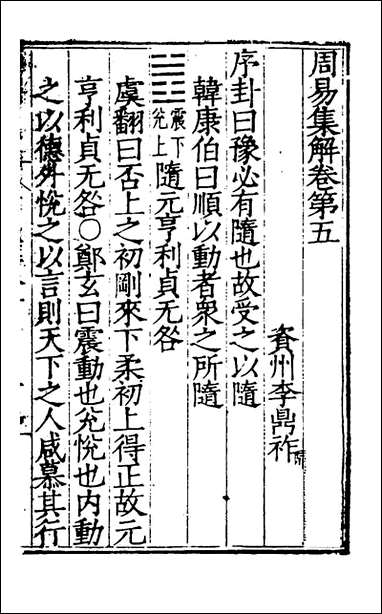 周易集解卷第五
資州李鼎祚
序卦曰豫必有隨也故受之以隨
韓康伯曰順以動者衆之所隨
䷐震下兊上隨元亨利貞无咎
虞翻曰否上之初剛來下柔初上得正故元
亨利貞无咎〇鄭玄曰震動也兊悅也内動
之以德外悅之以言則天下之人咸慕其行